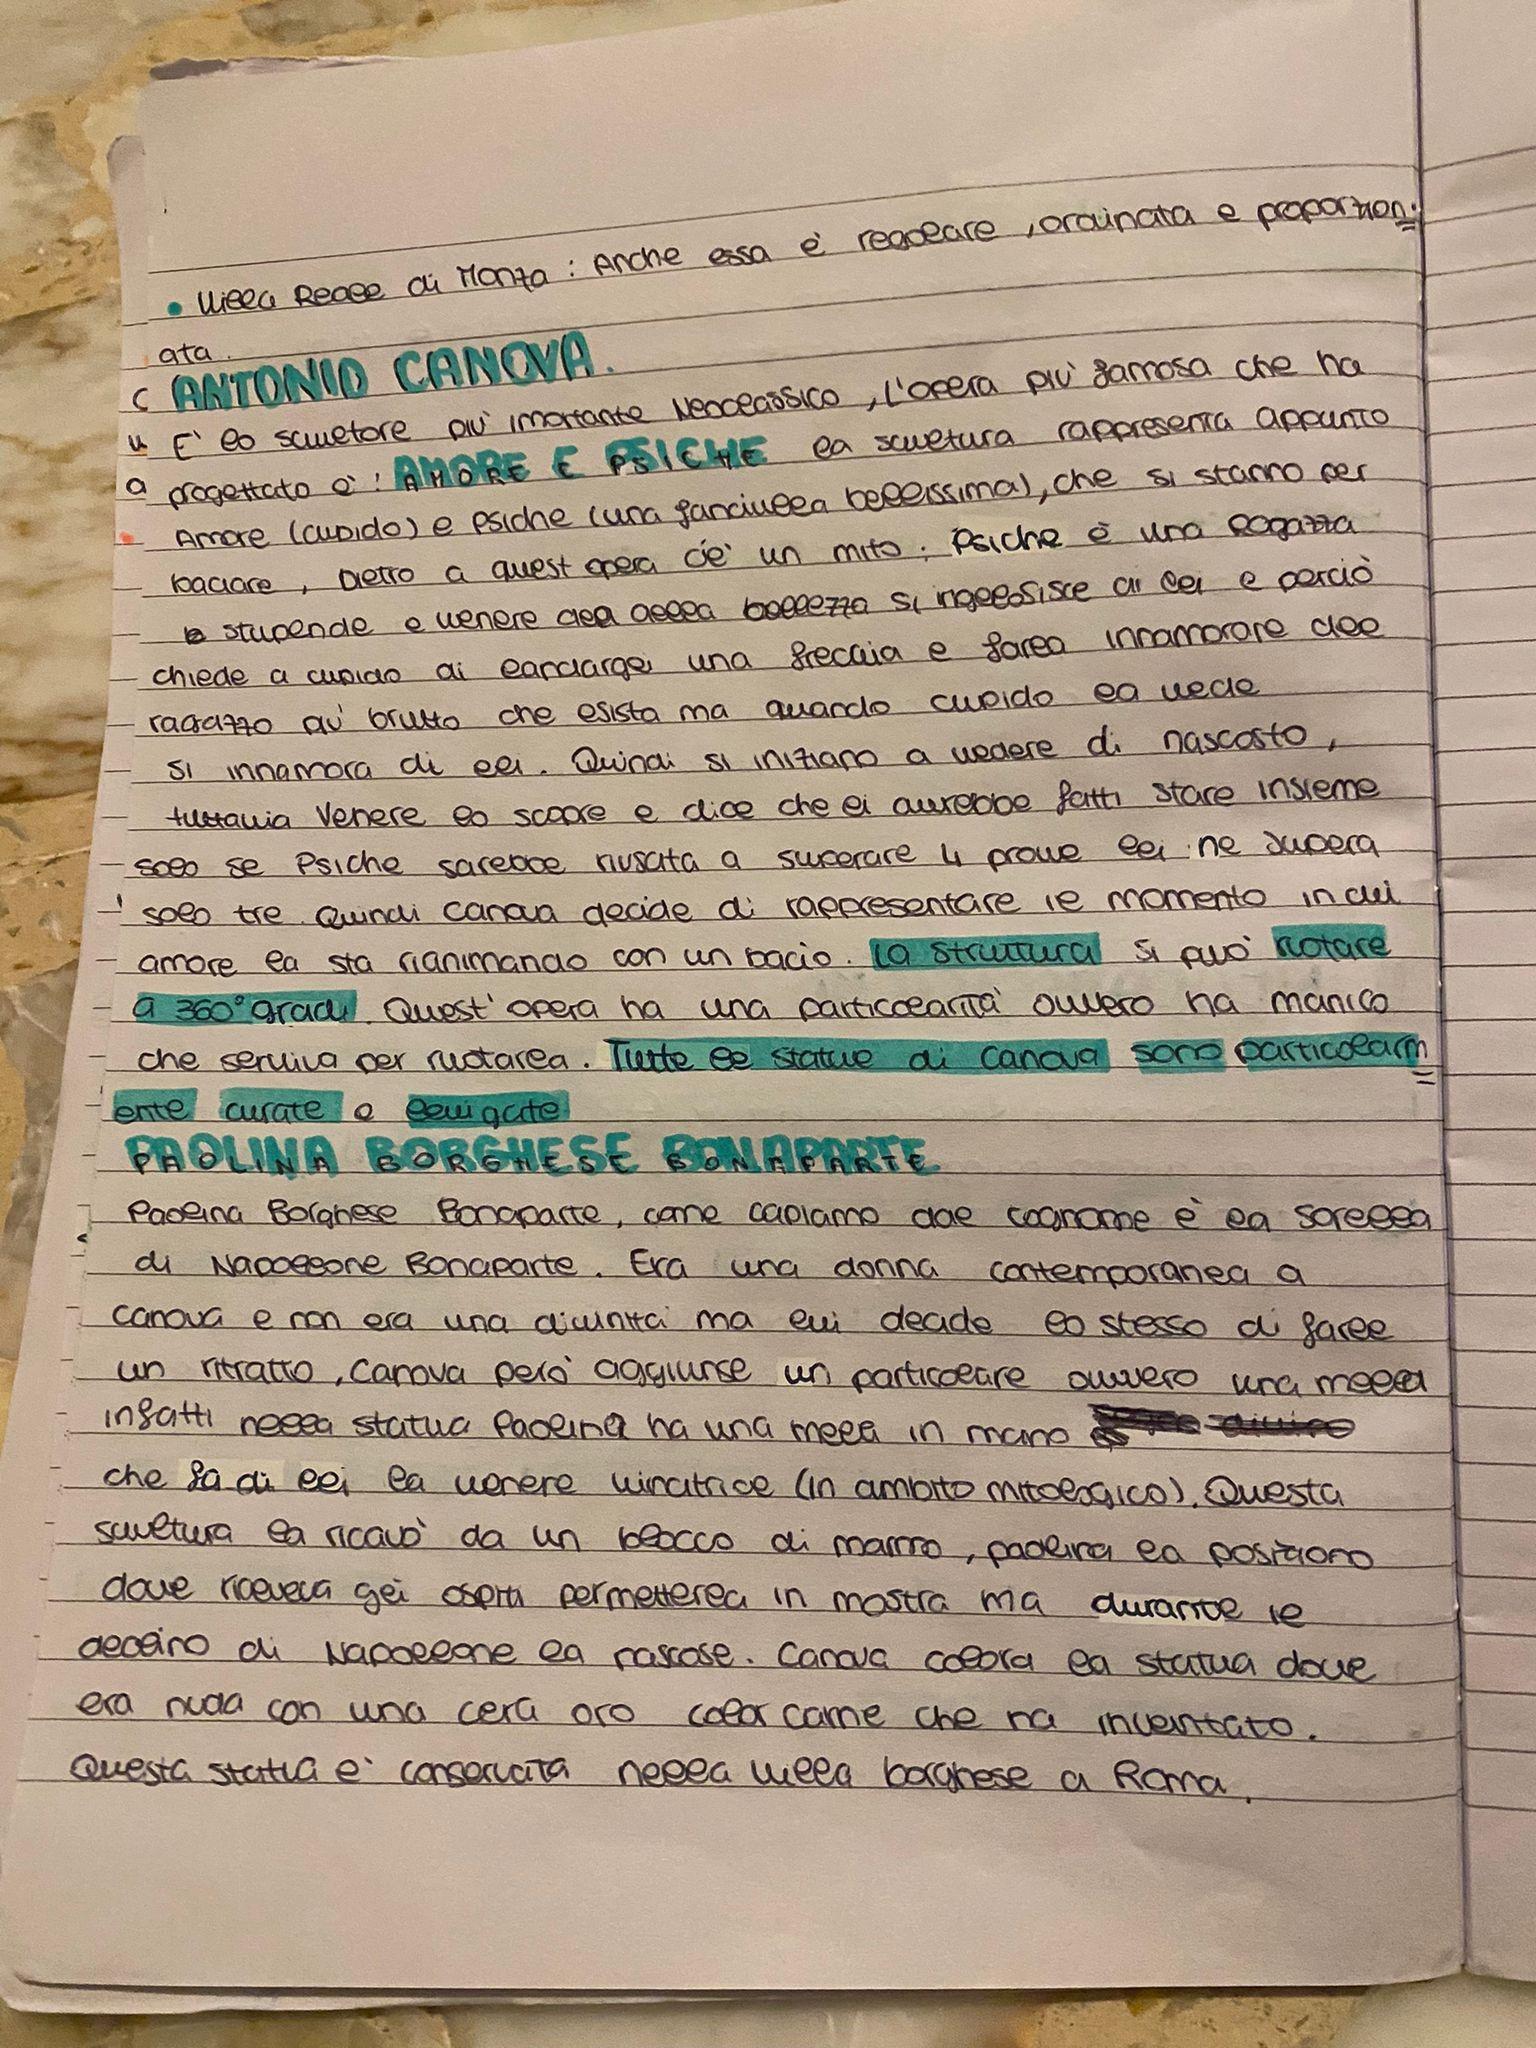 • Villa Reale di Monza : Anche essa è regolare , ordinata e proporzion
ata .
C ANTONIO CANOVA .
u E' lo scultore più imortante Neoclassico , L'opera più famosa che ha
a progettato è : AMORE E PSICHE la scultura rappresenta appunto
Amore (cupido) e psiche (una fanciulla bellissima), che si stanno per
baciare , Dietro a quest opera c'è un mito : Psiche è una Ragazza
stupende e venere dea della bellezza si ingelosisce di lei e perciò
chiede a cupido di lanciargli una freccia e farla innamorare del
ragazzo più brutto che esista ma quando cupido la vede
si innamora di lei . Quindi si iniziano a vedere di nascosto ,
tuttavia Venere lo scopre e dice che li avrebbe fatti stare insieme
solo se Psiche sarebbe riuscita a superare 4 prove lei ne supera
solo tre . Quindi Canova decide di rappresentare il momento in cui
amore la sta rianimando con un bacio . La struttura si può ruotare
a 360° gradi . Quest' opera ha una particolarità ovvero ha manico
che serviva per ruotarla . Tutte le statue di Canova sono particolarm
ente curate e levigate
PAOLINA BORGHESE BONAPARTE .
Paolina Borghese Bonaparte , come capiamo dal cognome è la sorella
di Napoleone Bonaparte . Era una donna contemporanea a
Canova e non era una divinità ma lui decide lo stesso di farle
un ritratto , Canova però aggiunse un particolare ovvero una mela
infatti nella statua Paolina ha una mela in mano
che fa di lei la venere vincitrice (in ambito mitologico) . Questa
scultura la ricavò da un blocco di marmo , paolina la posiziono
dove riceveva gli ospiti permetterla in mostra ma durante il
declino di Napoleone la nascose . Canova colora la statua dove
era nuda con una cera oro color carne che ha inventato .
Questa statua è conservata nella villa borghese a Roma .